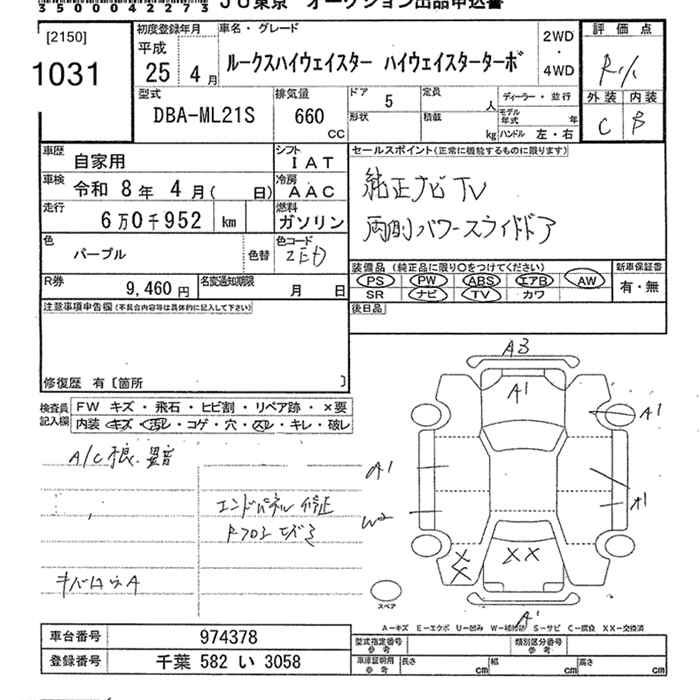 35004273 JU東京 オークション出品申込書
[2150]
1031
初度登録年月
平成
25 4 月
車名・グレード
ルークスハイウェイスター ハイウェイスターターボ
2WD
・
4WD
評価点
R
外装 内装
C B
型式
DBA-ML21S
排気量
660
CC
ドア 5
形状
定員 人
積載 kg
ディーラー・並行
モデル年式 年
ハンドル 左・右
車歴
自家用
シフト
IAT
車検
令和 8年 4月( 日)
冷房
AAC
走行
6万0千952 km
燃料
ガソリン
色
パープル
色替
色コード
R券
9,460 円
名変通知期限
月 日
セールスポイント(正常に機能するものに限ります)
純正ナビ TV
両側パワースライドドア
装備品 (純正品に限り○をつけてください)
PS PW ABS エアB AW
SR ナビ TV カワ
新車保証書
有・無
後日品
注意事項申告欄(不具合内容等は具体的に記入して下さい)
修復歴 有〔箇所 〕
検査員記入欄
FW キズ・飛石・ヒビ割・リペア跡・×要
内装 キズ・汚レ・コゲ・穴・スレ・キレ・破レ
エンドパネル修正
A3
A1
A1
A1
A1
W2
XX
スペア
A1
A-キズ E-エクボ U-凹み W-補修跡 S-サビ C-腐食 XX-交換済
車台番号 974378
登録番号 千葉 582 い 3058
型式指定番号
参考
類別区分番号
参考
車庫証明用
参考
長さ cm 幅 cm 高さ cm